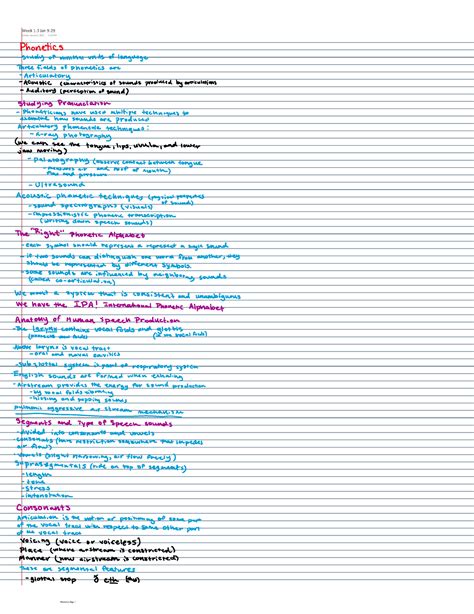 Week 1.3 Jan 9-29
Phonetics
Study of minimal units of language
Three fields of phonetics are
- Articulatory
- Acoustic (characteristics of sounds produced by articulations
- Auditory (perception of sound)
Studying Pronunciation
- Phoneticians have used multiple techniques to
examine how sounds are produced
Articulatory phonetic techniques:
- X-ray photography
(we can see the tongue, lips, uvula, and lower
jaw moving)
- Palatography (observe contact between tongue
and roof of mouth)
- measures air
flow and pressure
- Ultrasound
Acoustic phonetic techniques (physical properties
of sound)
- sound spectrographs (visuals)
- impressionistic phonetic transcription
(writing down speech sounds)
The "Right" Phonetic Alphabet
- each symbol should represent a sound
- if two sounds can distinguish one word from another, they
should be represented by different symbols.
- some sounds are influenced by neighboring sounds
(called co-articulation)
We want a system that is consistent and unambiguous
We have the IPA! International Phonetic Alphabet
Anatomy of Human Speech Production
- The larynx contains vocal folds and glottis
Above larynx is vocal tract
- oral and nasal cavities
- Sub glottal system is part of respiratory system
- English sounds are formed when exhaling
- Airstream provides the energy for sound production
- by vocal folds vibrating
- hissing and popping sounds
pulmonic aggressive air stream mechanism
Segments and Type of Speech sounds
- divided into consonants and vowels
- consonants (have restriction somewhere that impedes
air flow)
- vowels (slight narrowing, air flow freely)
Suprasegmentals (ride on top of segments)
- length
- tone
- stress
- intonation
Consonants
Articulation is the motion or positioning of some part
of the vocal tract with respect to some other part
of the vocal tract
Voicing (voice or voiceless)
Place (where airstream is constricted)
Manner (how airstream is constricted)
These are segmental features
- glottal stop